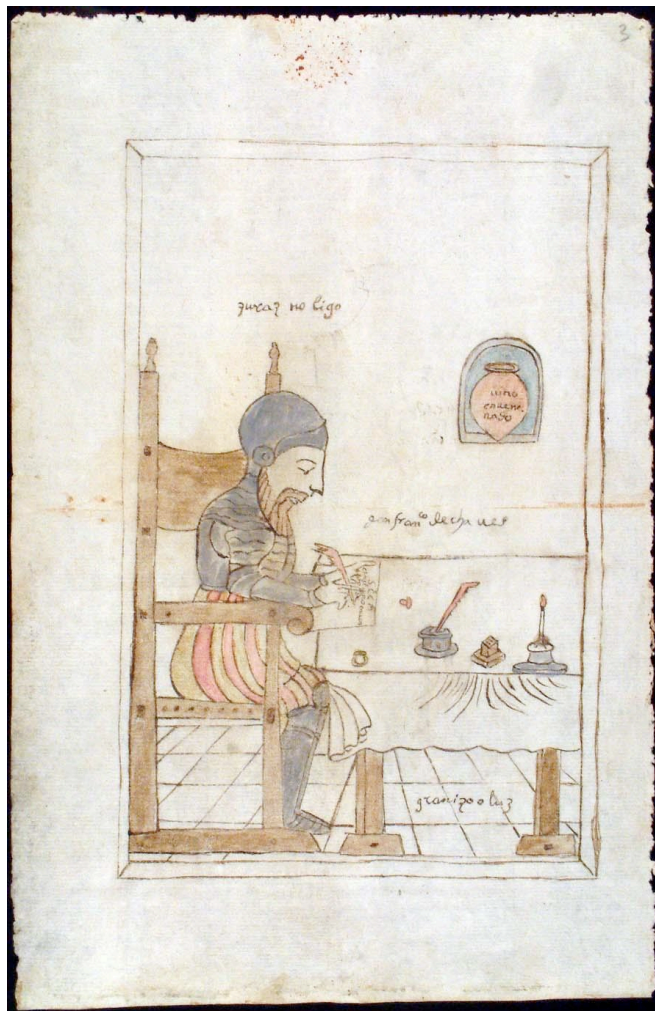 3
zuraz no ligo
uino
enuene
nado
don fran.co de chaues
granizo o luz